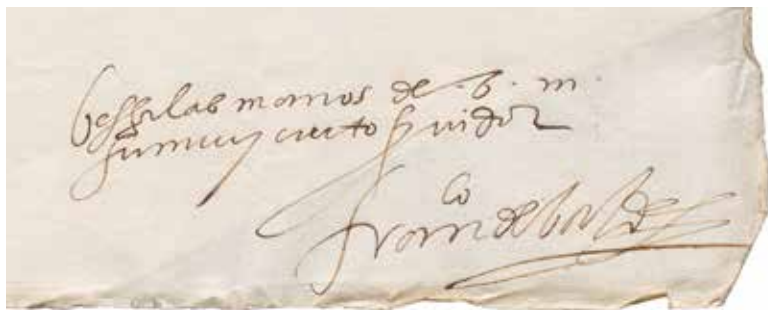 besa las manos de v. m.
su muy cierto servidor
Franco de